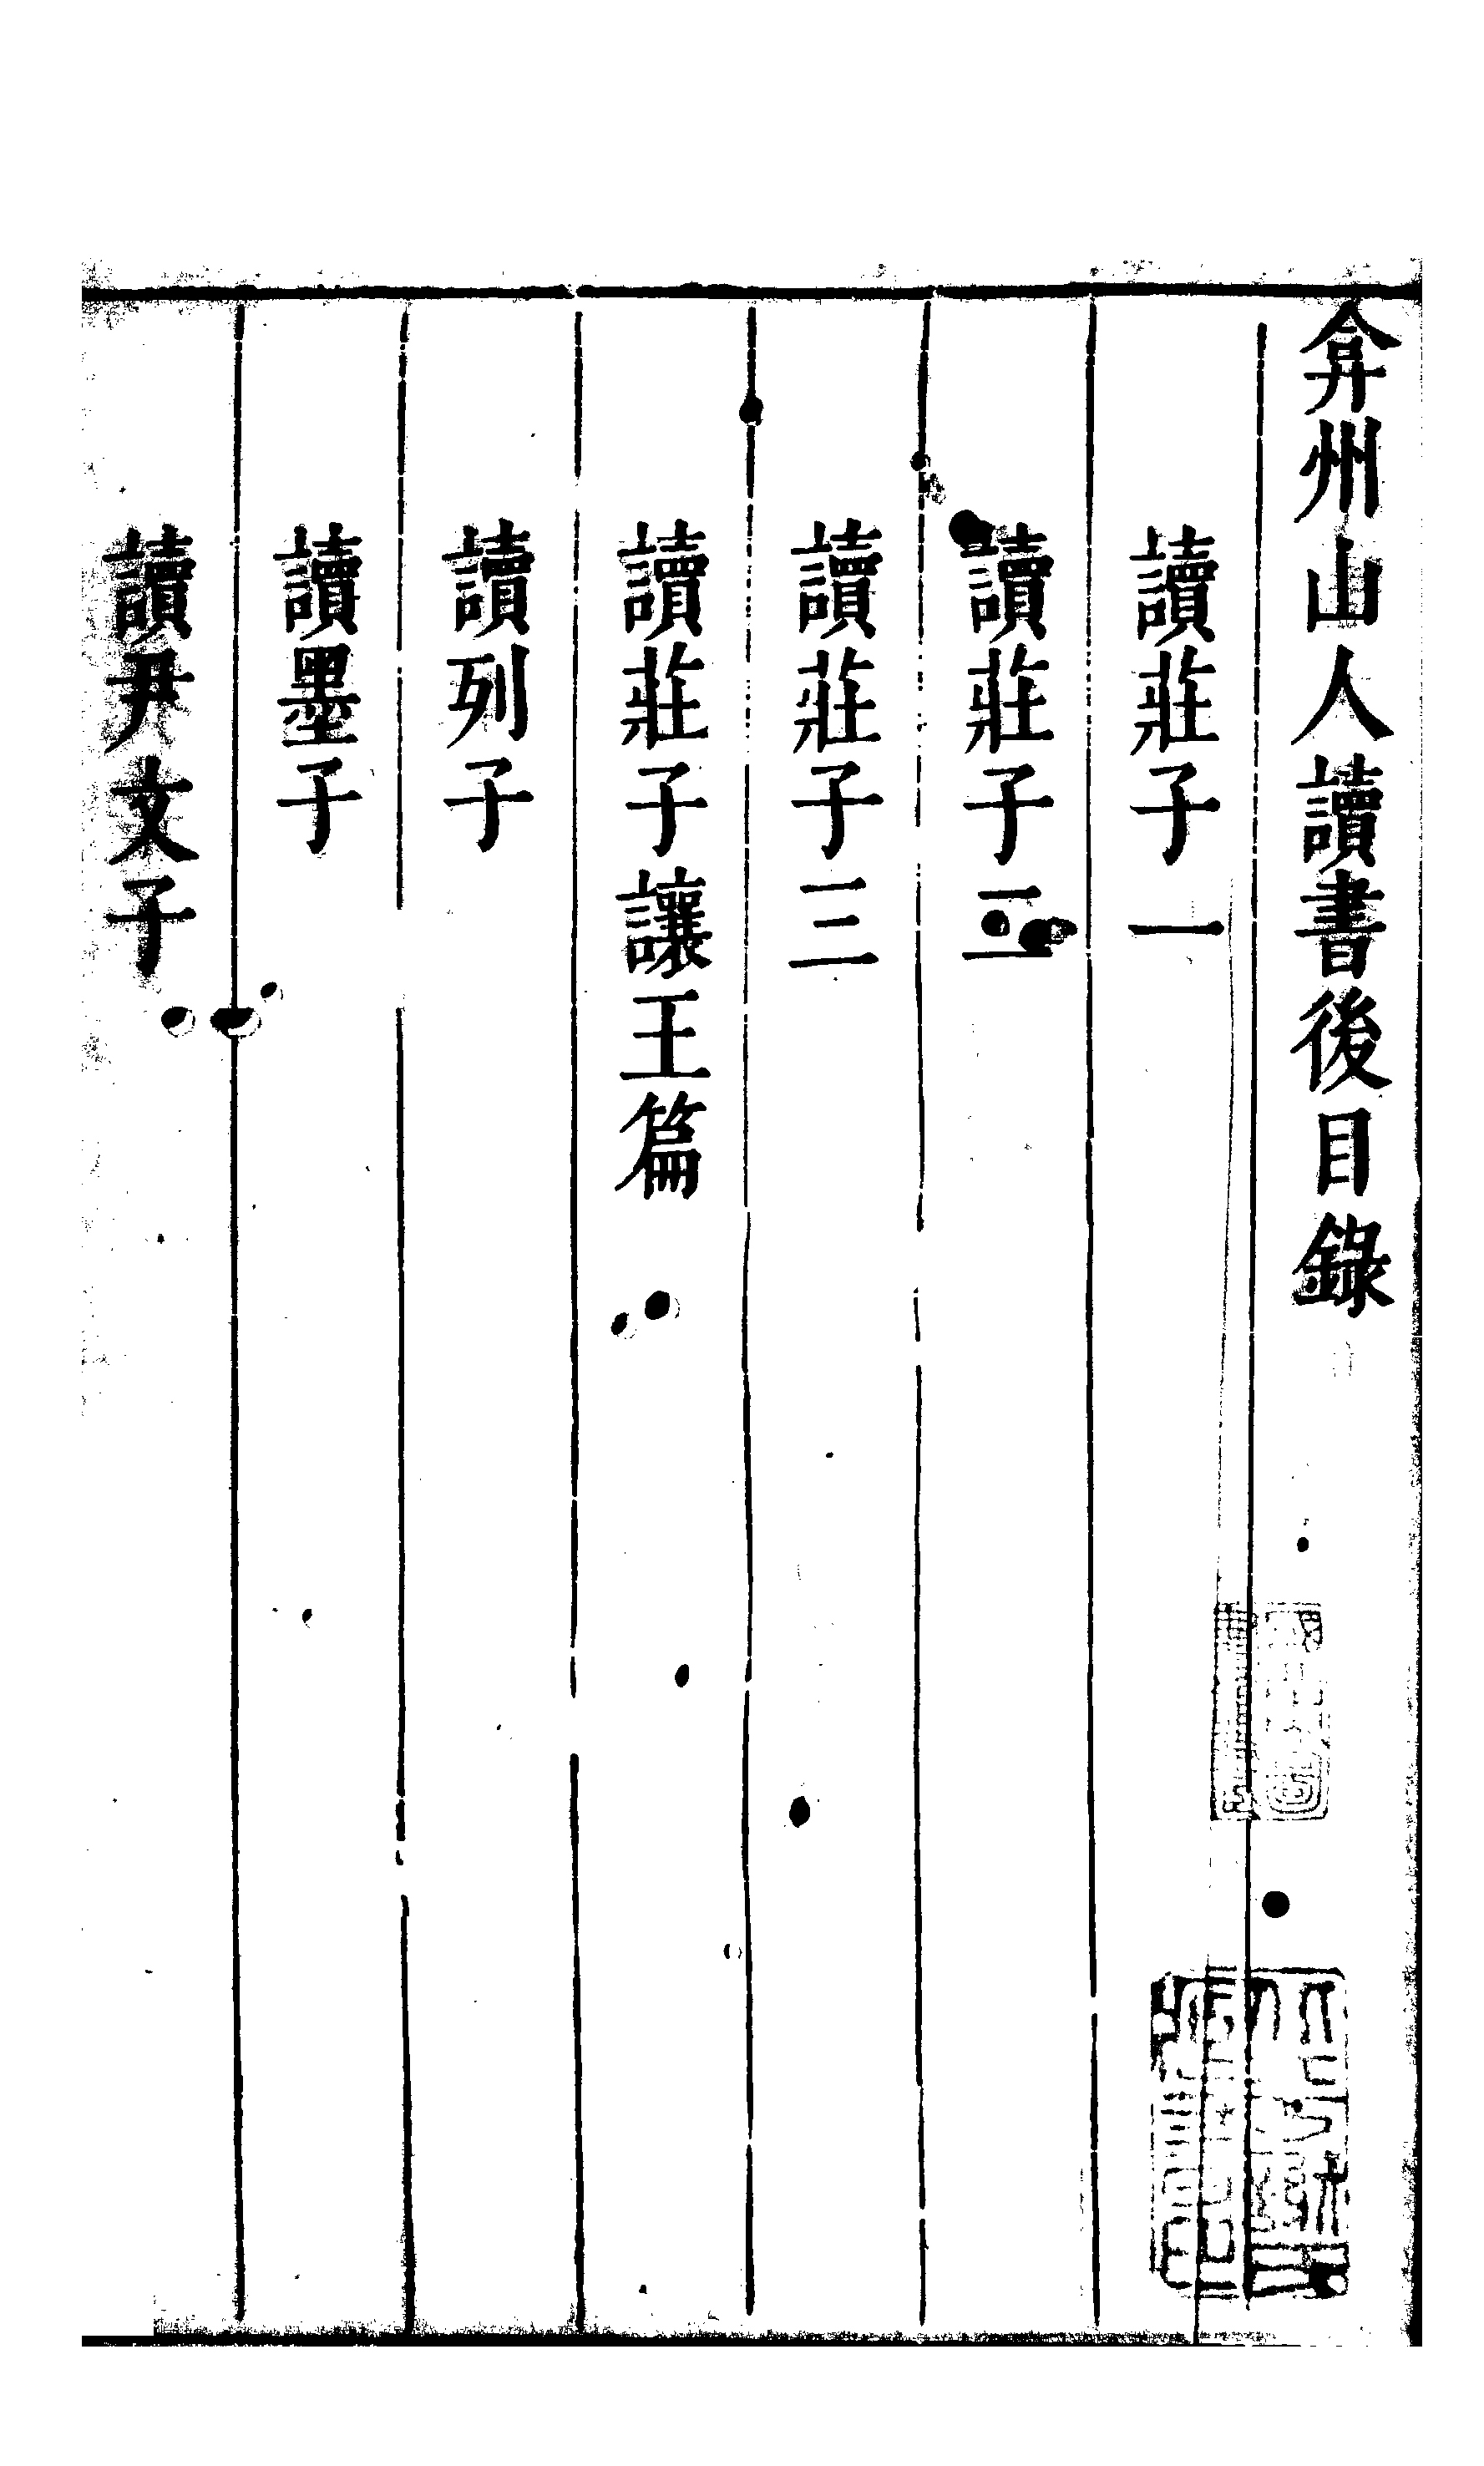 弇州山人讀書後目錄
讀莊子一
讀莊子二
讀莊子三
讀莊子讓王篇
讀列子
讀墨子
讀尹文子